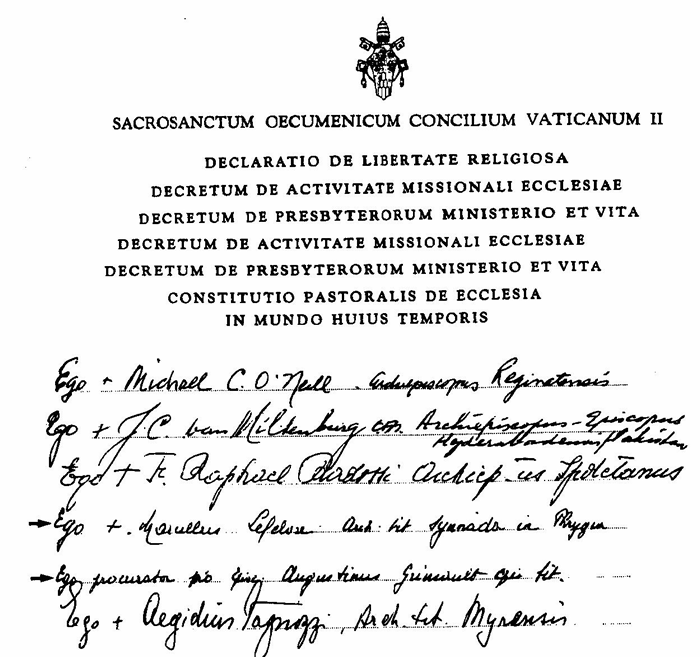 SACROSANCTUM OECUMENICUM CONCILIUM VATICANUM II
DECLARATIO DE LIBERTATE RELIGIOSA
DECRETUM DE ACTIVITATE MISSIONALI ECCLESIAE
DECRETUM DE PRESBYTERORUM MINISTERIO ET VITA
DECRETUM DE ACTIVITATE MISSIONALI ECCLESIAE
DECRETUM DE PRESBYTERORUM MINISTERIO ET VITA
CONSTITUTIO PASTORALIS DE ECCLESIA
IN MUNDO HUIUS TEMPORIS
Ego + Michael C. O'Neill Archiepiscopus Reginatensis
Ego + J.C. van Miltenburg Archiepiscopus-Episcopus
Hyderabadensis/Pakistan
Ego + F. Raphael Archiep-us Spoletanus
Ego + Marcellus Lefebvre Arch. tit. Synnada in Phrygia
Ego procurator Augustinus tit.
Ego + Aegidius Arch. tit. Myrensis